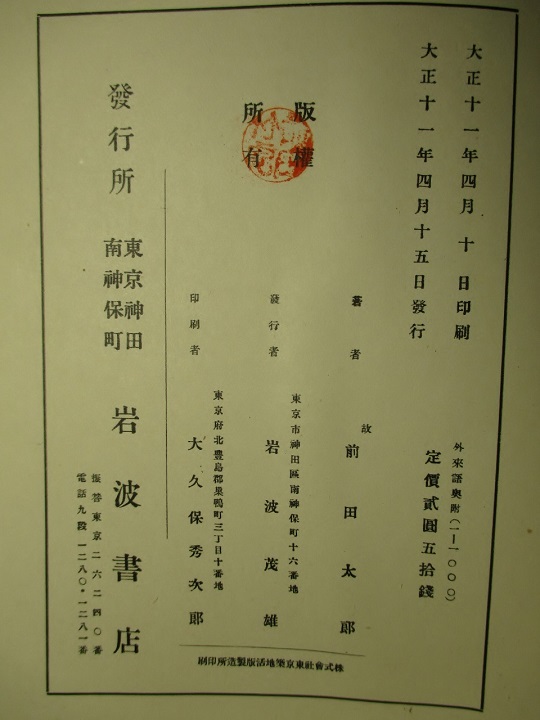 大正十一年四月十日印刷
大正十一年四月十五日發行
外來語奧附(一—一〇〇〇)
定價貳圓五拾錢
版權
所有
著者
故
前田太郎
發行者
東京市神田區南神保町十六番地
岩波茂雄
印刷者
東京府北豊島郡巢鴨町三丁目十番地
大久保秀次郎
發行所
東京神田
南神保町
岩波書店
振替東京二六二四〇番
電話九段一二八〇・一二八一番
株式會社東京築地活版製造所印刷